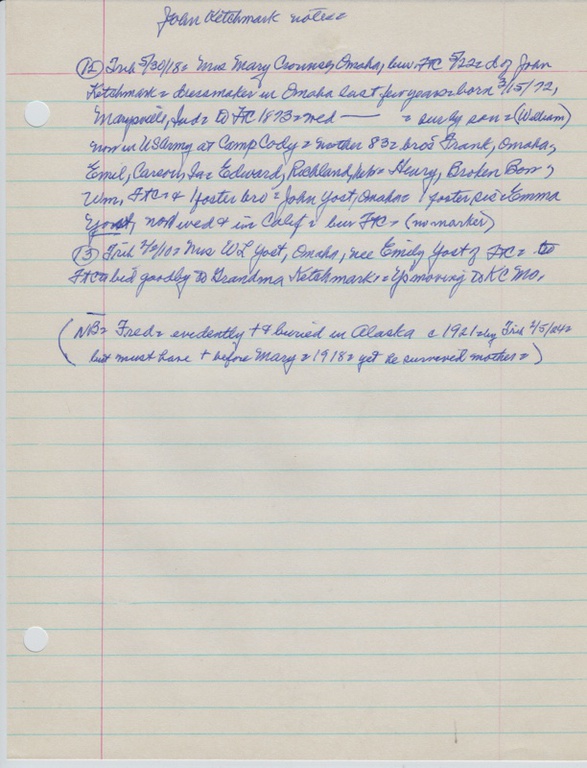 John Ketchmark notes=
(12) Trib 5/30/18= Mrs Mary Crounse, Omaha, bur FTC 5/22= d of John
Ketchmark= dressmaker in Omaha last few years= born 3/15/72,
Marysville, Ind= to FTC 1873= wed — = surby son= (William)
now in US Army at Camp Cody= mother 83= bros Frank, Omaha,
Emil, Carson, Ia= Edward, Richland, Neb= Henry, Broken Bow,
Wm, FTC= & foster bro= John Yost, Omaha= foster sis= Emma
Yost, now wed & in Calif= bur FTC= (no marker)
(13) Trib /10= Mrs WL Yost, Omaha, nee Emily Yost of FTC= to
FTC a bid goodby to Grandma Ketchmark= Ys moving to KC Mo.
(NB= Fred= evidently + & buried in Alaska c 1921= by Trib
but must have + before Mary= 1918= yet he survived mother=)